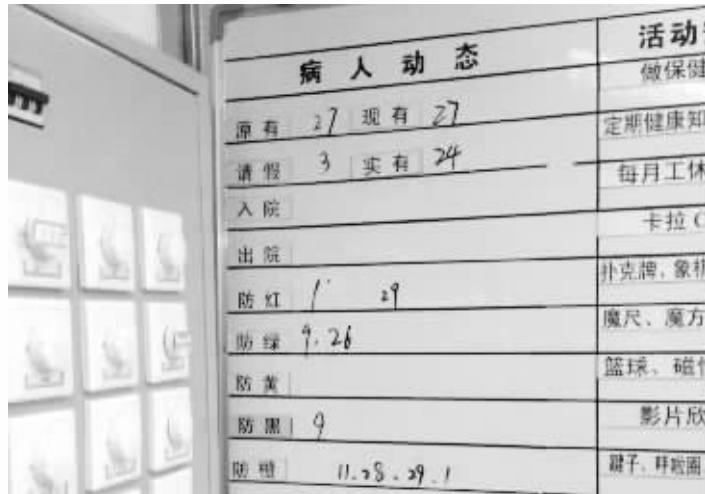 病人动态
原有 27 现有 27
请假 3 实有 24
入院
出院
防红 1 29
防绿 9.26
防黄
防黑 9
防橙 11.28.29.1
活动
做保健
定期健康知
每月工休
卡拉O
扑克牌、象棋
魔尺、魔方
篮球、磁
影片欣
毽子、呼啦圈